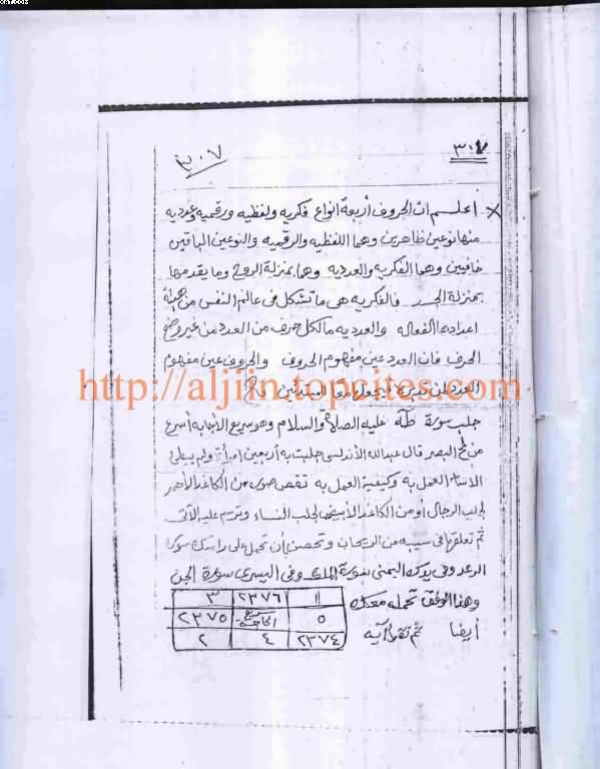 ٣٠٧ ٣٠٧
اعلم ان الحروف أربعة انواع فكريه ولفظيه ورقميه وعدديه
منها نوعين ظاهرين وهما اللفظيه والرقميه والنوعين الباقيين
خافيين وهما الفكريه والعدديه وهما بمنزلة الروح وما يقدمها
بمنزلة الجسد فالفكريه هى ما تشكل فى عالم النفس من
اعدادها الفعاله والعدديه مالكل حرف من العدد من غير
الحرف فان العدد عين مفهوم الحروف والحروف عين مفهوم
العدد
http://aljiin.topcites.com
جلب سورة طه عليه الصلاة والسلام وهو سريع الاجابه أسرع
من لمح البصر قال عبدالله الأندلسى جلبت به أربعين امرأة ولم يبطى
العمل به وكيفية العمل به تقص صورة من الكاغد الأحمر
لجلب الرجال أو من الكاغد الأبيض لجلب النساء وترسم عليه الآتى
ثم تعلقها فى سيبه من الريحان وتحصن بأن تحمل على راسك سورة
الرعد وفى يدك اليمنى سورة الملك وفى اليسرى سورة الجن
وهذا الوفق تحمله معك
أيضا ثم تقرأ آية
١١ ٢٣٧٦ ٣
٥ ٢٣٧٥
٢٣٧٤ ٤ ٢